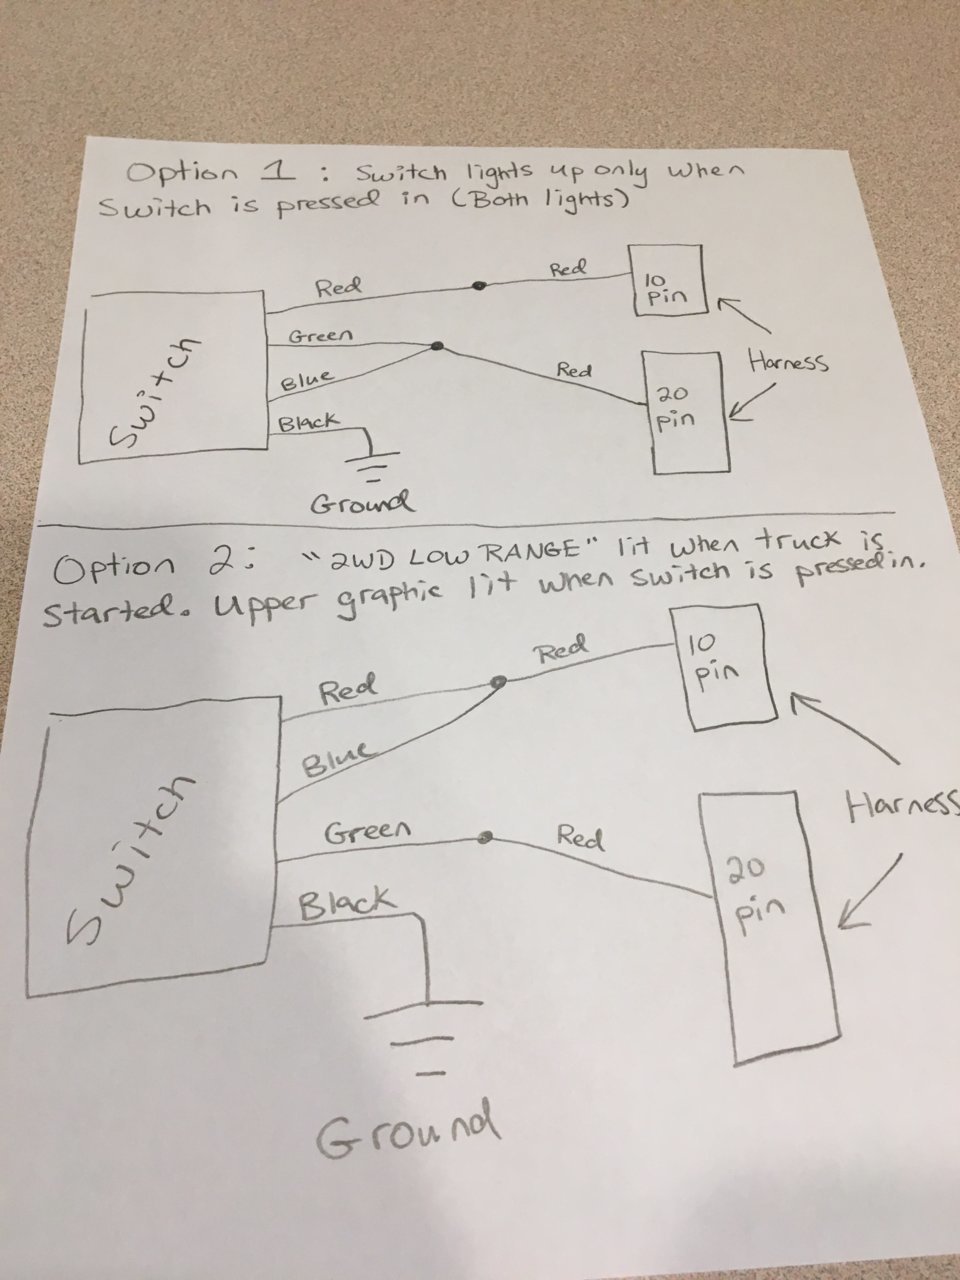 Option 1 : Switch lights up only when
Switch is pressed in (Both lights)
Red
Red
10
pin
Green
Blue
Red
Harness
20
pin
Black
Switch
Ground
Option 2: "2WD LOW RANGE" lit when truck is
started. Upper graphic lit when switch is pressed in.
Red
Red
10
pin
Blue
Harness
Green
Red
20
pin
Black
Switch
Ground